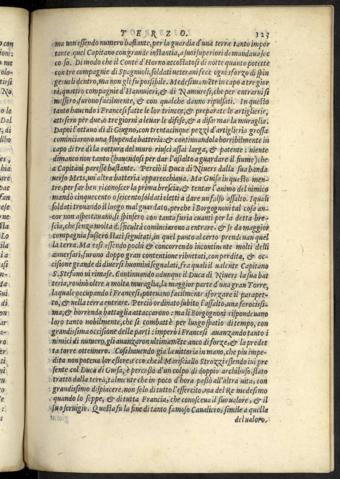 TERZO. 123
ma non essendo numero bastante, per la guardia d'una terra tanto impor
tante quel Capitano con grande instantia, a suoi superiori domandava soc
co so. Di modo che il Conte d'Horno accostatosi di notte quanto potette
con tre compagnie di Spagnuoli, soldati veterani fece ogni sforzo di spin
gervili dentro, ma non gli fu possibile. Medesimamente in capo a tre gior
ni, quattro compagnie d'Hannuieri, & di Namuresi, che per entrarvi si
missero, furono facilmente, & con qualche danno ripulsati. In questo
tanto havendo i Francesi fatte le lor trincee, & preparate le artiglierie,
attesero per due, o tre giorni a levar le difese, & a disarmar la muraglia.
Dapoi l'ottavo dì di Giugno, con trentacinque pezzi d'artiglieria grossa
cominciarono una stupenda batteria: & continuandola horribilmente in
capo a tre dì la rottura del muro riuscì assai larga, & patente: niente
dimanco non tanto (havendosi per dar l'assalto a guardare il fiume) che
a Capitani paresse bastante. Perciò il Duca di Nivers dalla sua banda
verso Mets, un'altra batteria apparecchiava. Ma Guisa in questo men
tre, per far ben riconoscer la prima breccia, & tentar l'animo del nimico
mandò cinquecento o seicento soldati eletti a dare un falso assalto. I quali
soldati trovando il luogo mal guardato, perche i Borgognoni tal cosa an-
cor non aspettavano, si spinsero con tanta furia avanti per la detta brec-
cia, che senza molta difficultà cominciarono a entrare. & se da maggior
compagnia fussero stati seguitati, in quel punto al certo prendevan quel
la terra. Ma essi essendo pochi & concorrendo incontinente molti delli
aversari, furono doppo gran contentione ributtati, con perdita, & oc
casione grande di diversi huomini segnalati, fra quali il valente Capitano
S. Stefano vi rimase. Continuando adunque il Duca di Nivers la sua bat
teria, rovinò oltre a molta muraglia, la maggior parte d'una gran Torre,
la quale occupando i Francesi, potevano facilmente sforzare il parapet-
to, & nella terra entrare. Perciò ordinato subito l'assalto, una ferocissi-
ma, & horrenda battaglia attaccarono: ma i Borgognoni rispondevano
loro tanto nobilmente, che si combattè per lungo spatio di tempo, con
grandissima occisione delle parti: imperò i Francesi avanzando tanto i
nimici di numero, gli avanzarono ultimamente anco di forze, & la predet
ta torre ottennero. Così havendo già la vittoria in mano, che più impe-
dita non poteva lor essere: ecco che il Marescial Strozzi essendo ivi pre-
sente col Duca di Guisa, è percosso d'un colpo di doppio archibuso, stato
tratto dalla terra, talmente che in poco d'hora passò all'altra vita, con
grandissimo dispiacere, non solo di tutto l'essercito, ma del Re medesimo
quando lo seppe, & di tutta Francia, che conosceva il suo valore, & il
suo servigio. Questa fu la fine di tanto famoso Cavaliero, simile a quella
del valoro.